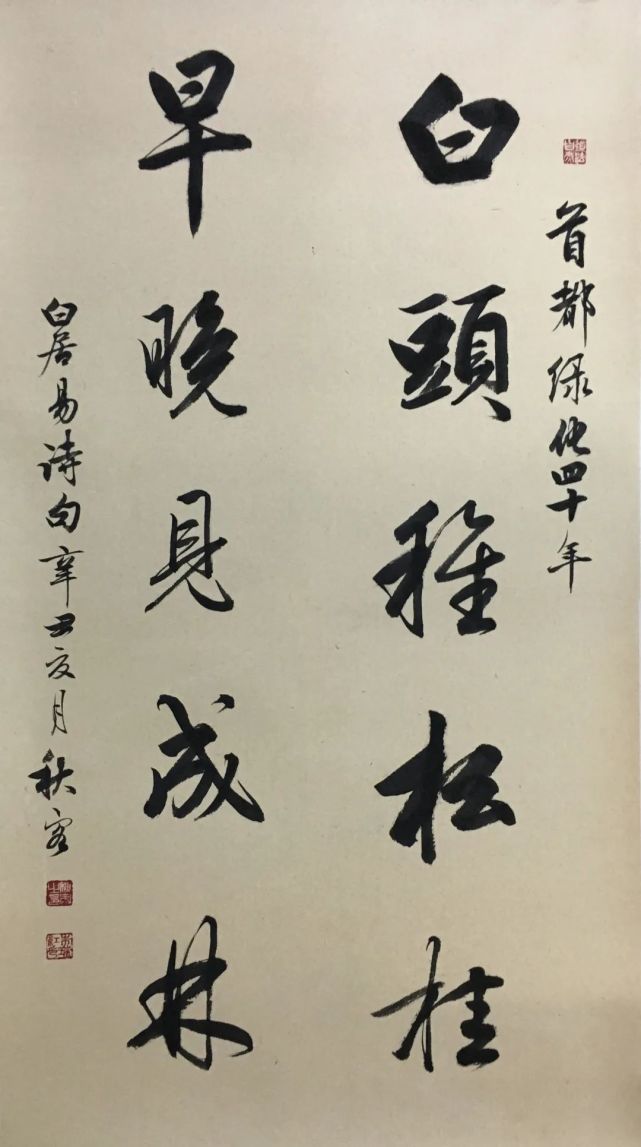 首都绿化四十年
白頭種松桂
早晚見成林
白居易诗句辛丑夏月秋客